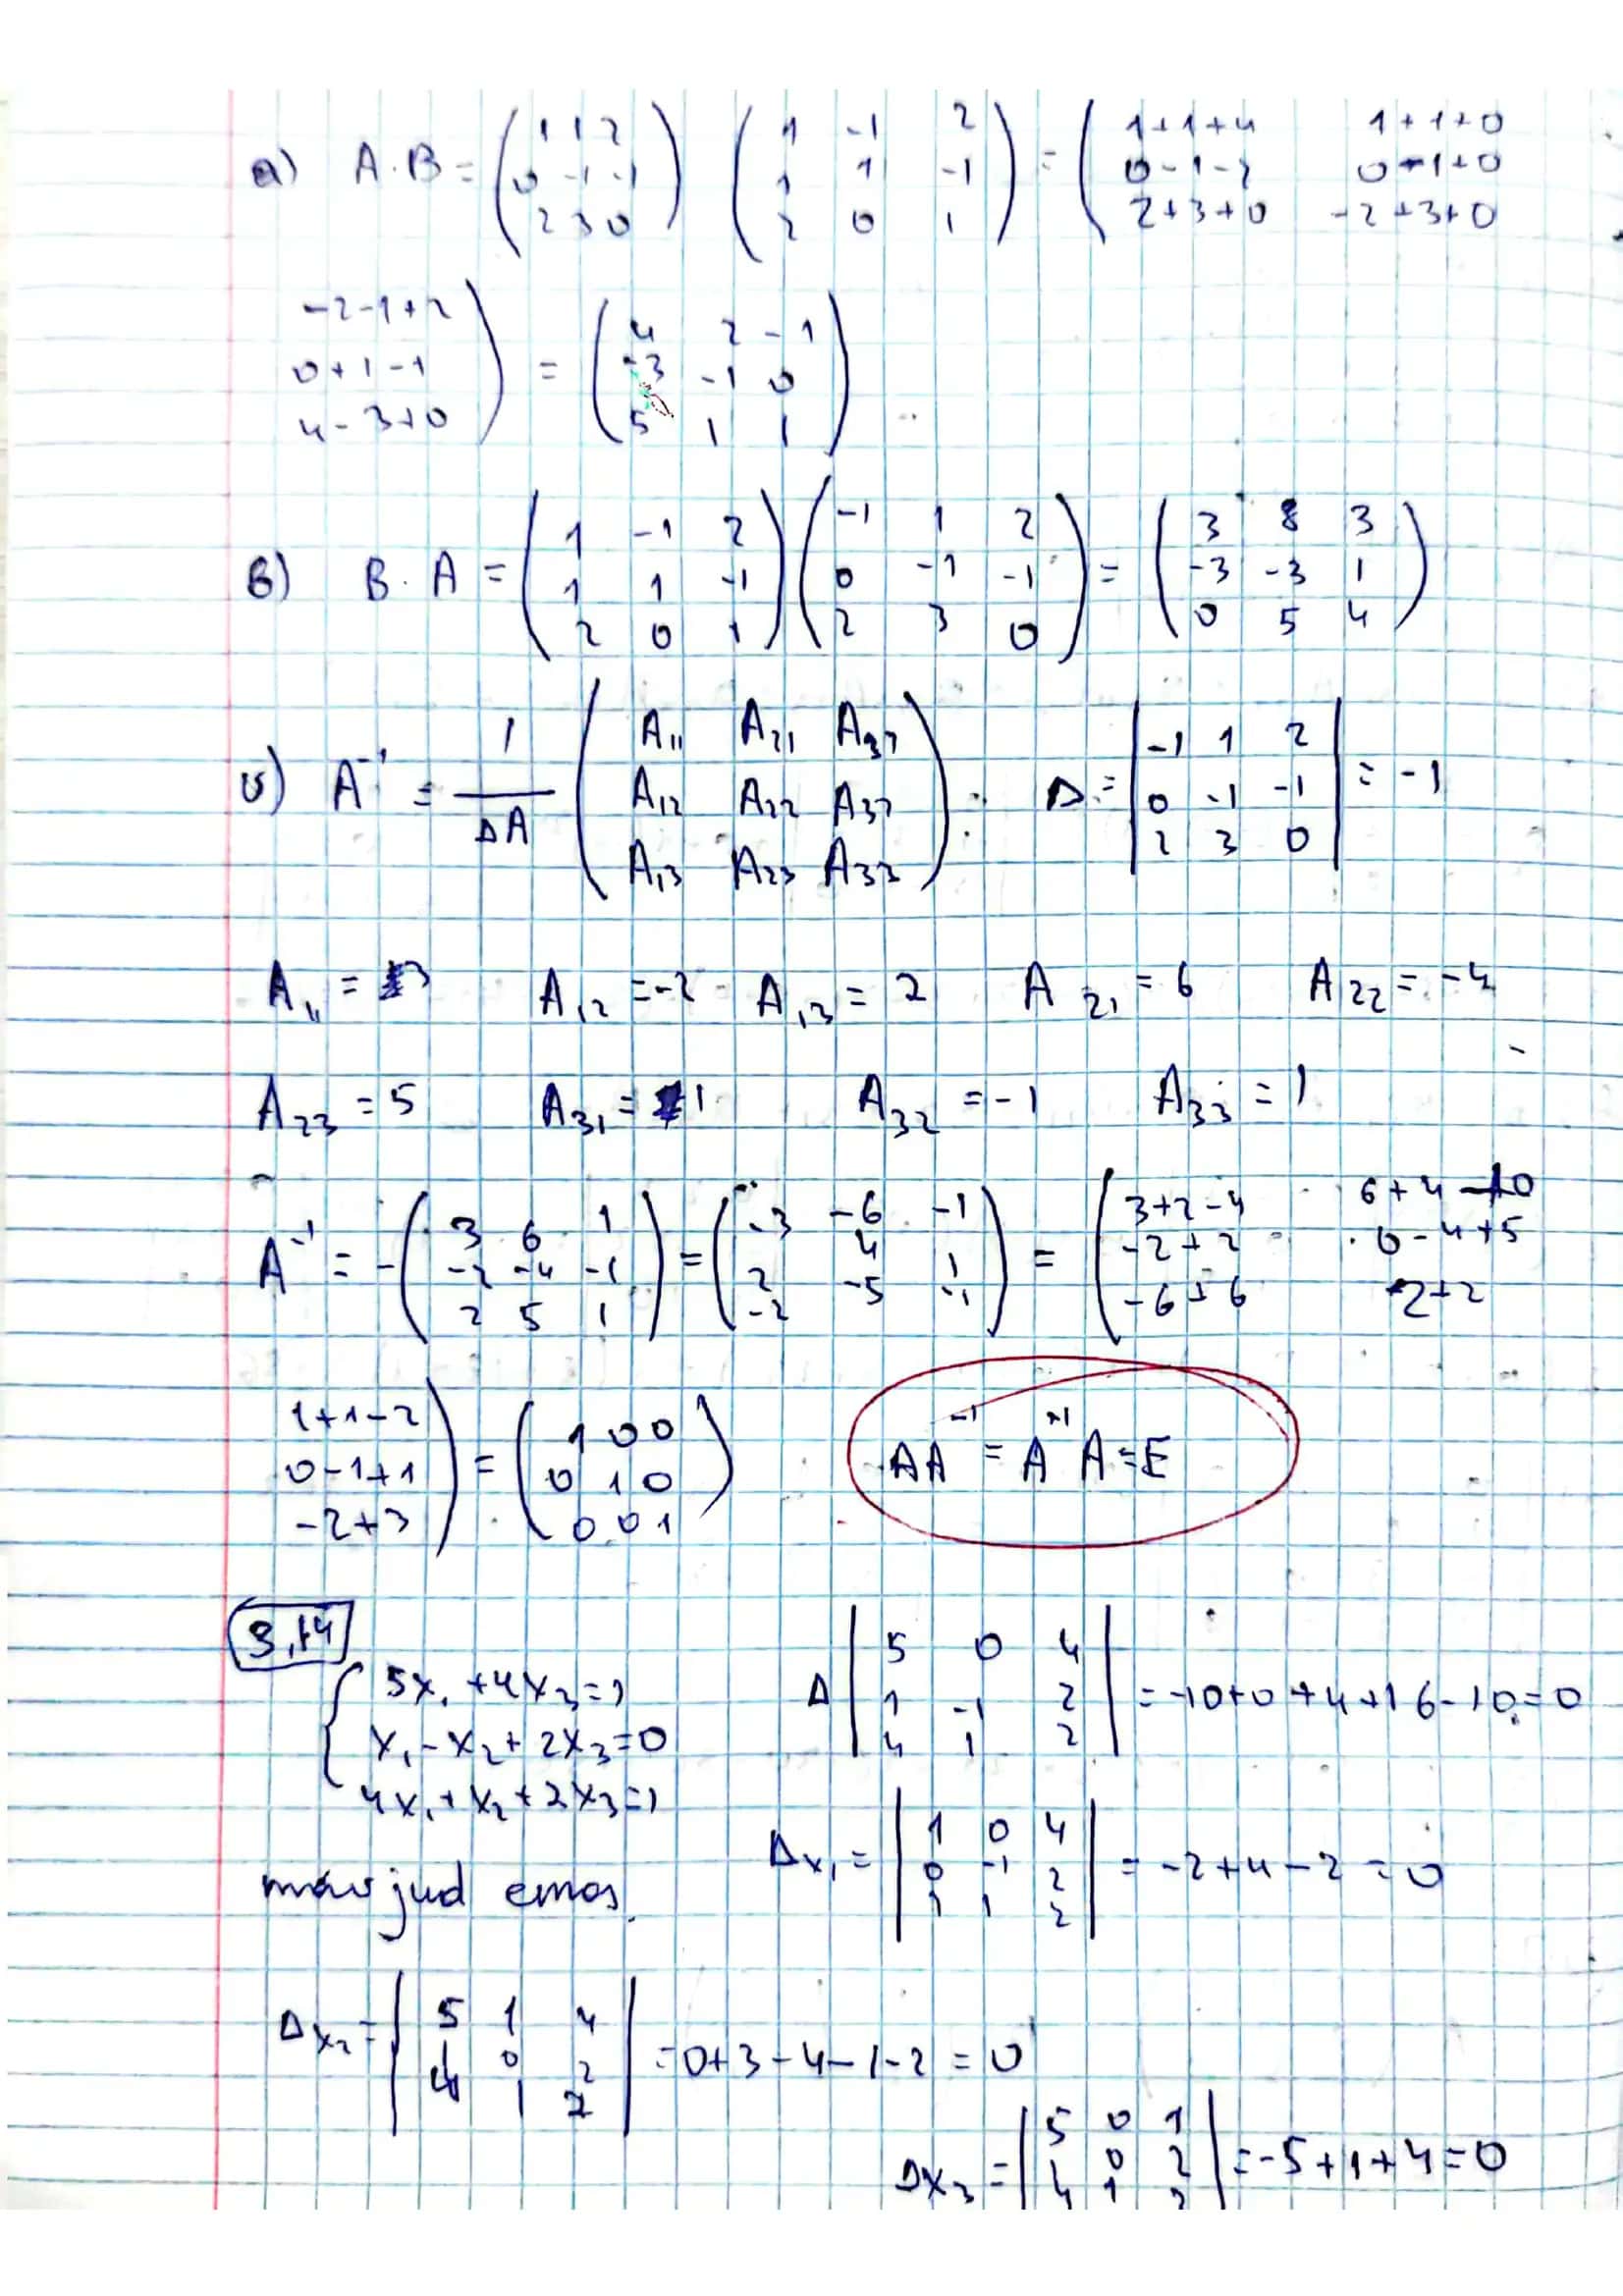 a) A·B = (1 1 2 / 0 -1 -1 / 2 3 0) (1 -1 2 / 1 1 -1 / 2 0 1) = (1+1+4 1+1+0 / 0-1-2 0-1+0 / 2+3+0 -2+3+0
-2-1+2 / 0+1-1 / 4-3+0) = (4 2 -1 / -3 -1 0 / 5 1 1)
b) B·A = (1 -1 2 / 1 1 -1 / 2 0 1) (-1 1 2 / 0 -1 -1 / 2 3 0) = (3 8 3 / -3 -3 1 / 0 5 4)
v) A⁻¹ = 1/ΔA (A₁₁ A₂₁ A₃₁ / A₁₂ A₂₂ A₃₂ / A₁₃ A₂₃ A₃₃) Δ = |-1 1 2 / 0 -1 -1 / 2 3 0| = -1
A₁₁ = 3 A₁₂ = -2 A₁₃ = 2 A₂₁ = 6 A₂₂ = -4
A₂₃ = 5 A₃₁ = 1 A₃₂ = -1 A₃₃ = 1
A⁻¹ = -(3 6 1 / -2 -4 -1 / 2 5 1) = (-3 -6 -1 / 2 4 1 / -2 -5 -1) = (3+2-4 6+4-10 / -2+2 0-4+5 / -6+6 -2+2
1+1-2 / 0-1+1 / -2+3) = (1 0 0 / 0 1 0 / 0 0 1) AA⁻¹ = A⁻¹A = E
3.14
{5x₁+4x₃=1 Δ |5 0 4 / 1 -1 2 / 4 1 2| = -10+0+4+16-10=0
x₁-x₂+2x₃=0
4x₁+x₂+2x₃=1
mavjud emas. Δx₁ = |1 0 4 / 0 -1 2 / 1 1 2| = -2+4-2=0
Δx₂ = |5 1 4 / 1 0 2 / 4 1 2| = 0+3-4-1-2=0
Δx₃ = |5 0 1 / 0 2 / 4 1| = -5+1+4=0